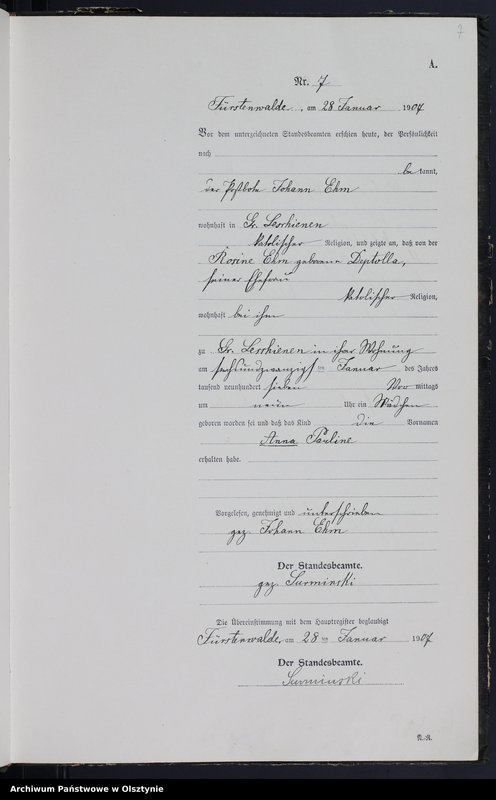 7
A.
Nr. 7
Fürstenwalde, am 28 Januar 1907
Vor dem unterzeichneten Standesbeamten erschien heute, der Persönlichkeit
nach
bekannt,
der Postbote Johann Ehm
wohnhaft in Gr. Leschienen
katolischer Religion, und zeigte an, daß von der
Rosine Ehm geborenen Deptolla,
seiner Ehefrau
katolischer Religion,
wohnhaft bei ihm
zu Gr. Leschienen in ihrer Wohnung
am sechsundzwanzigsten Januar des Jahres
tausend neunhundert sieben Vor mittags
um neun Uhr ein Mädchen
geboren worden sei und daß das Kind die Vornamen
Anna Pauline
erhalten habe.
Vorgelesen, genehmigt und unterschrieben
gez. Johann Ehm
Der Standesbeamte.
gez. Surminski
Die Übereinstimmung mit dem Hauptregister beglaubigt
Fürstenwalde, am 28 ten Januar 1907
Der Standesbeamte.
Surminski
N.-R.
Archiwum Państwowe w Olsztynie